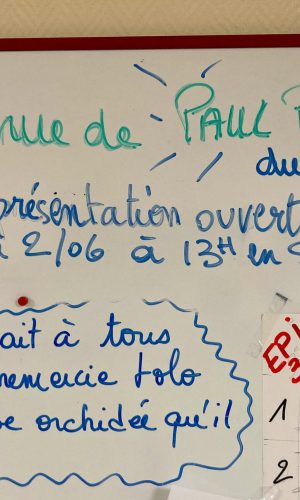 nue de PAUL
du
présentation ouvert
2/06 à 13H en
ait à tous
remercie Lolo
orchidée qu'il
EPI
3
1
2